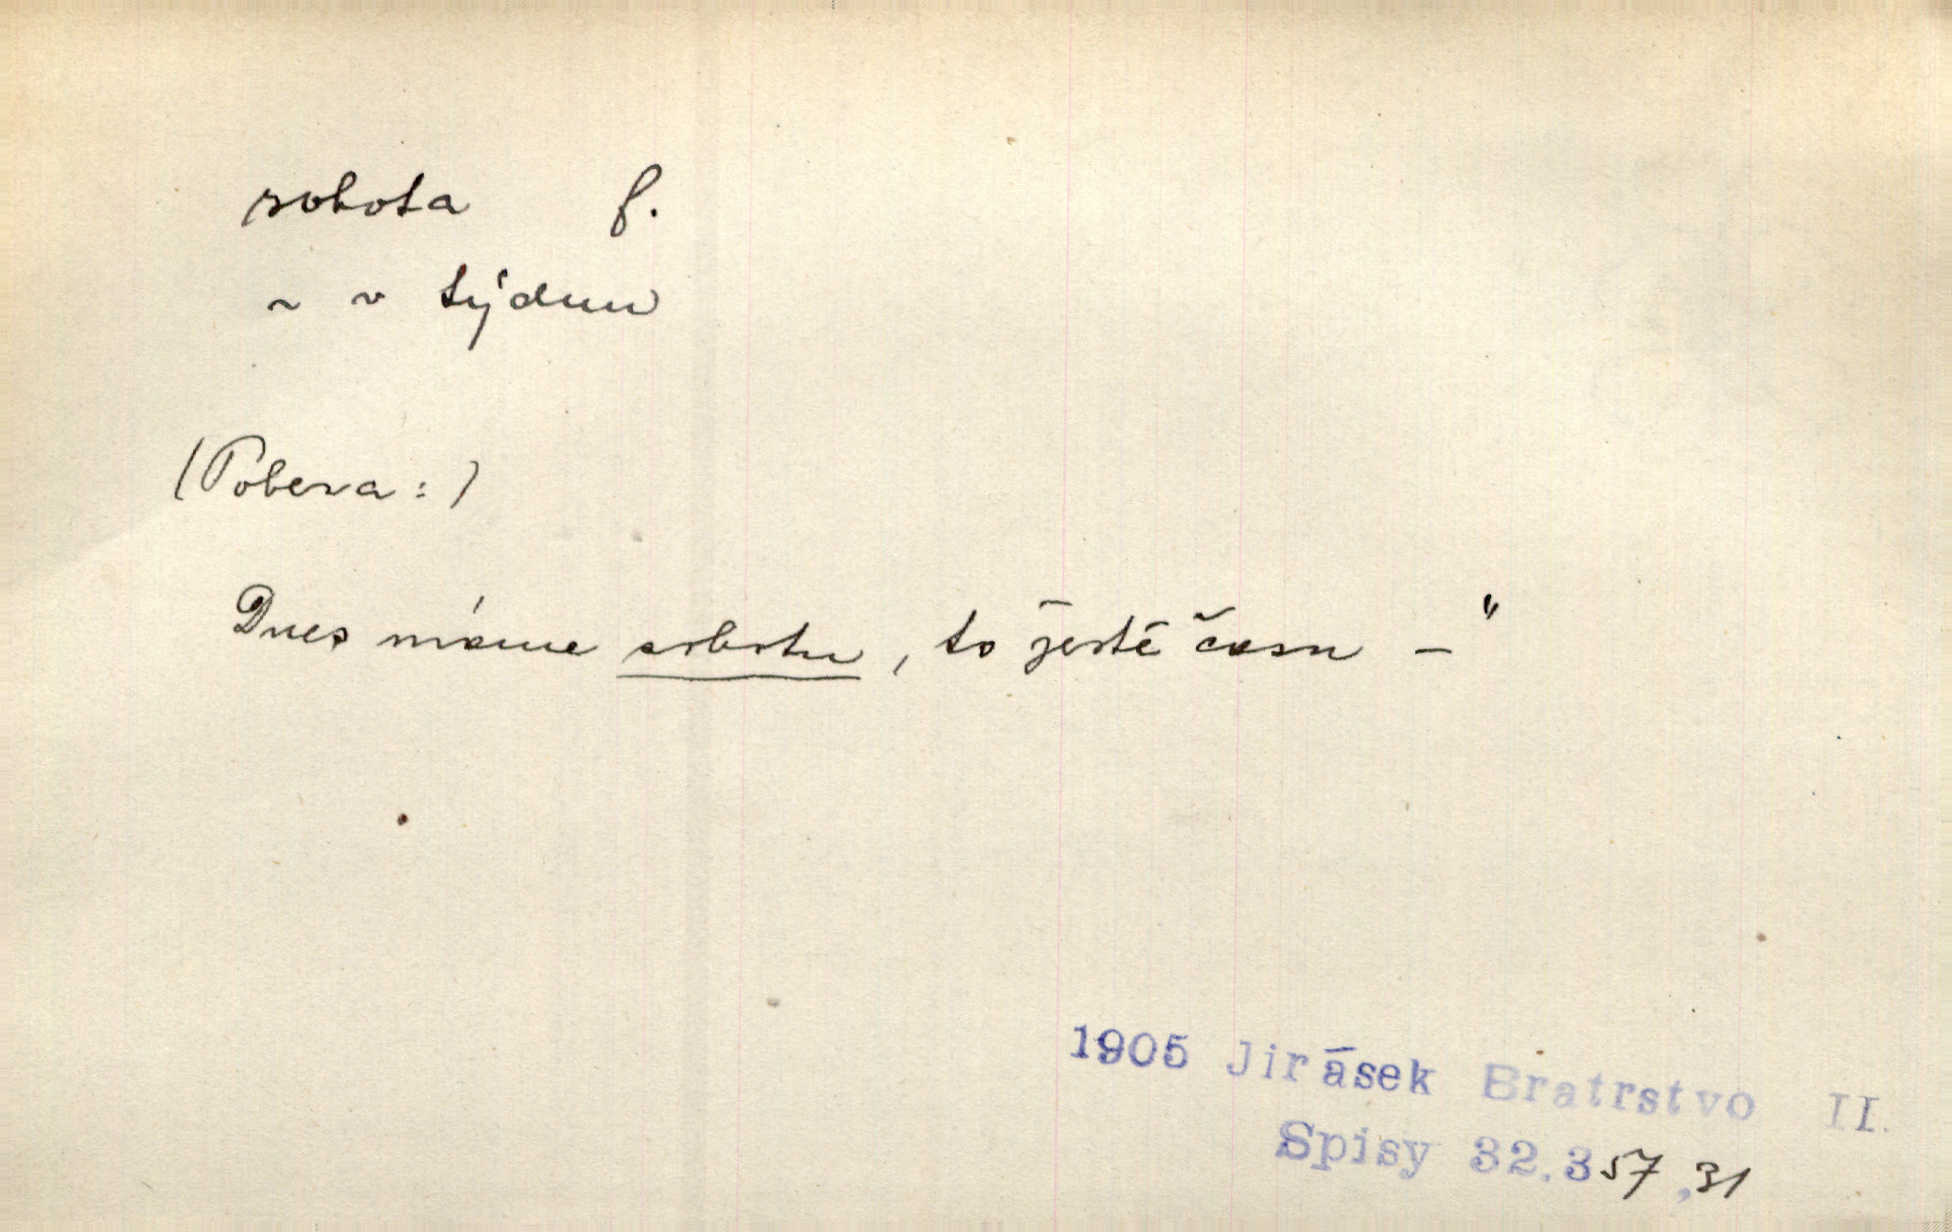 sobota f.
~ v týdnu
(Pobera:)
Dnes máme sobotu, to ještě času —"
1905 Jirásek Bratrstvo II.
Spisy 32.357,31